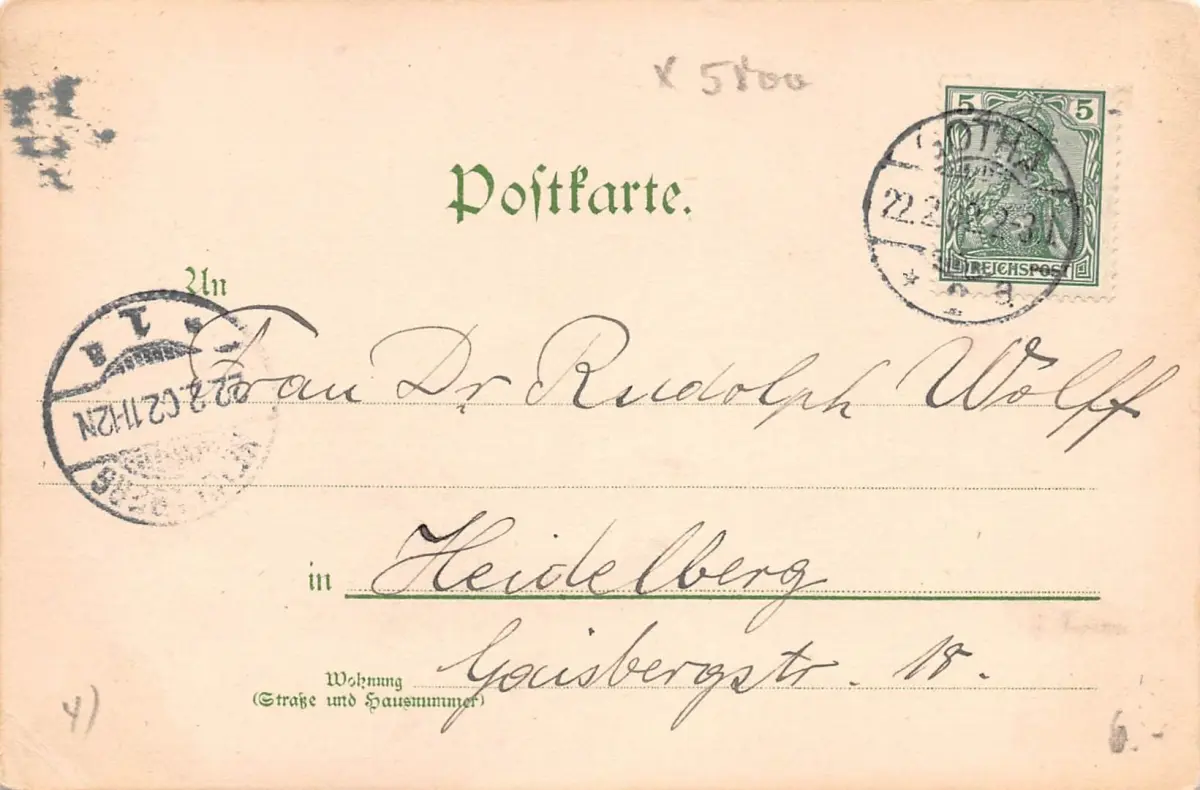 x 5800
5 5
GOTHA
22.2.02.2-3.N
REICHSPOST
* 2 a.
Postkarte.
An
* 1 a
22.2.02.11-12N
Frau Dr Rudolph Wolff
in Heidelberg
Wohnung
(Straße und Hausnummer)
Gaisbergstr. 18.
4)
6.-